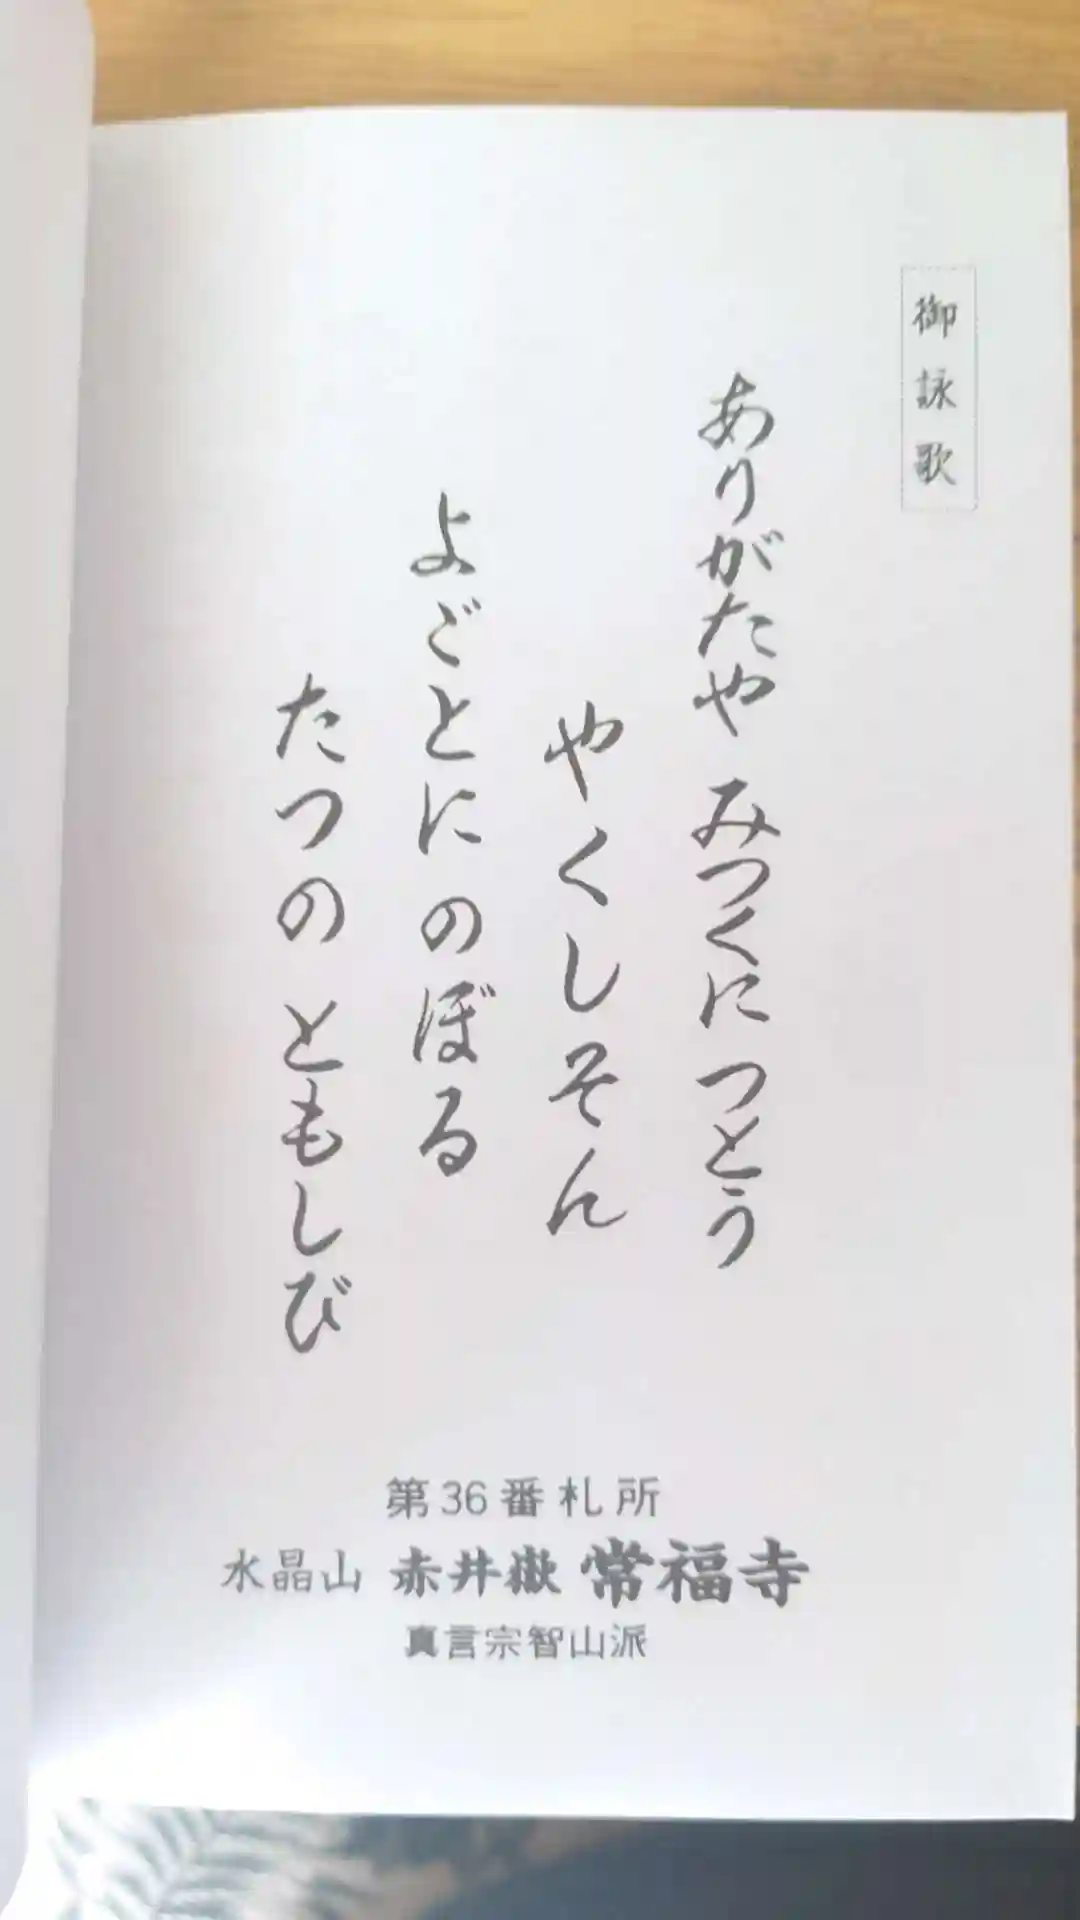 御詠歌
ありがたや みつくにつとう
やくしそん
よごとにのぼる
たつの ともしび
第36番札所
水晶山 赤井嶽 常福寺
真言宗智山派